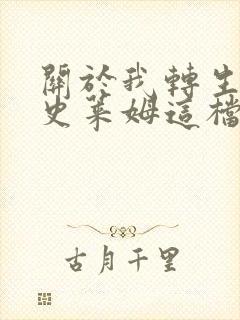 關於我轉生
史萊姆這檔
古月千里